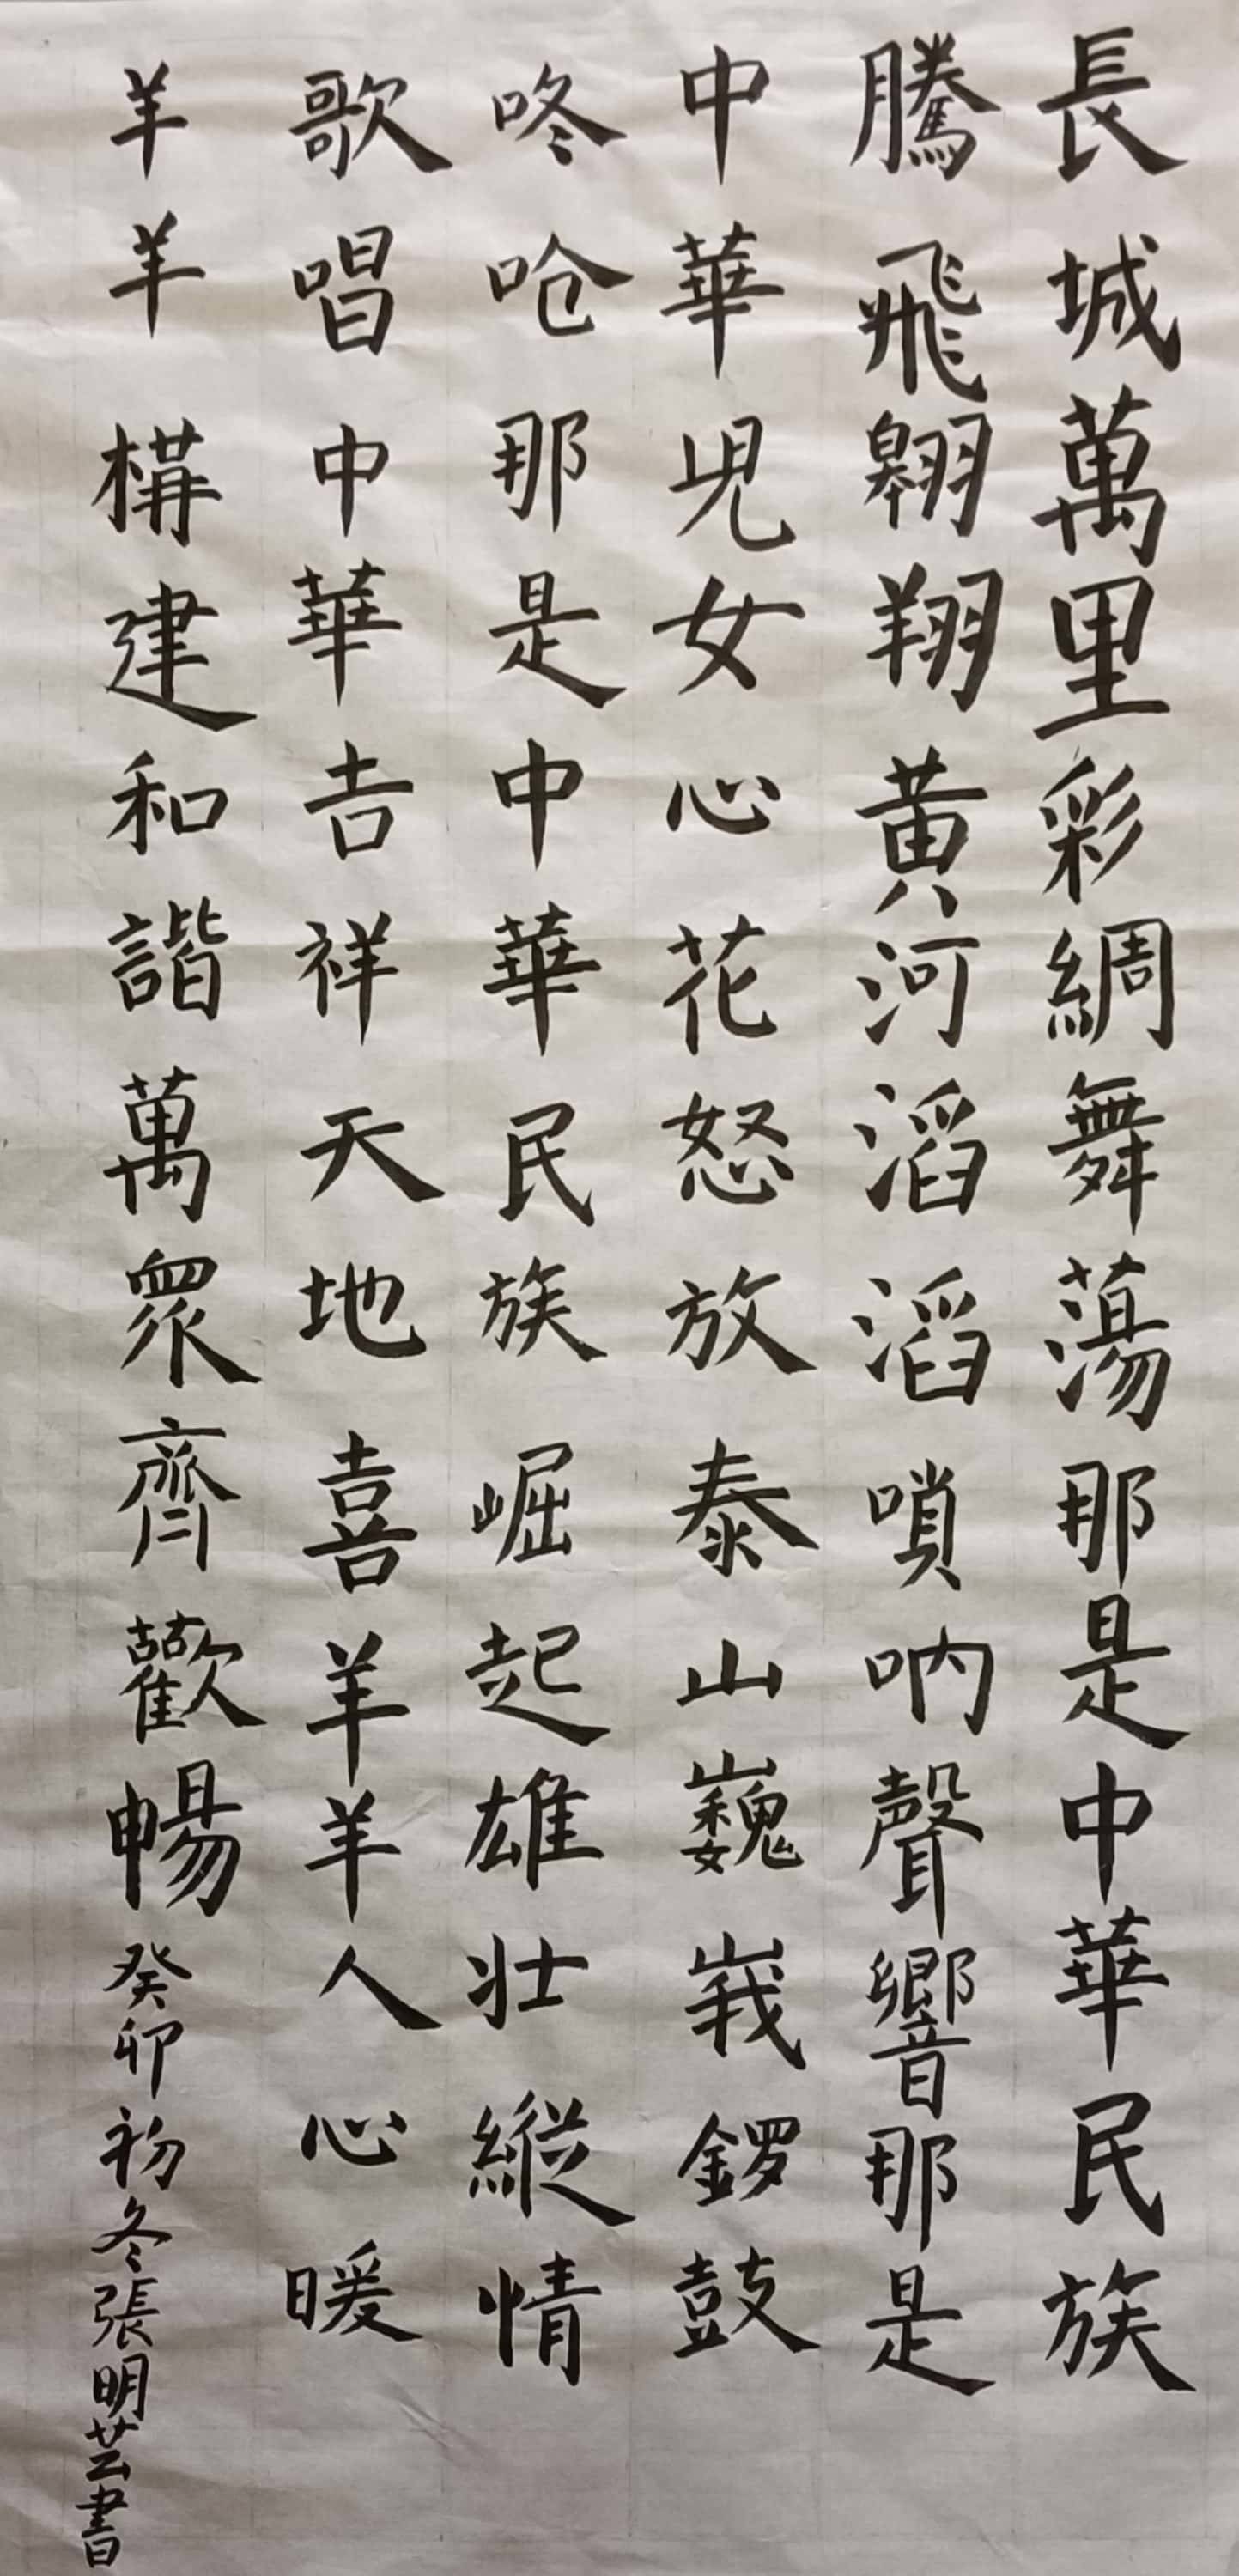 長城萬里彩綢舞蕩那是中華民族
騰飛翱翔黃河滔滔嗩吶聲響那是
中華児女心花怒放泰山巍峩鑼鼓
咚呛那是中華民族崛起雄壯縱情
歌唱中華吉祥天地喜羊羊人心暖
羊羊構建和諧萬眾齊歡暢癸卯初冬張明芸書